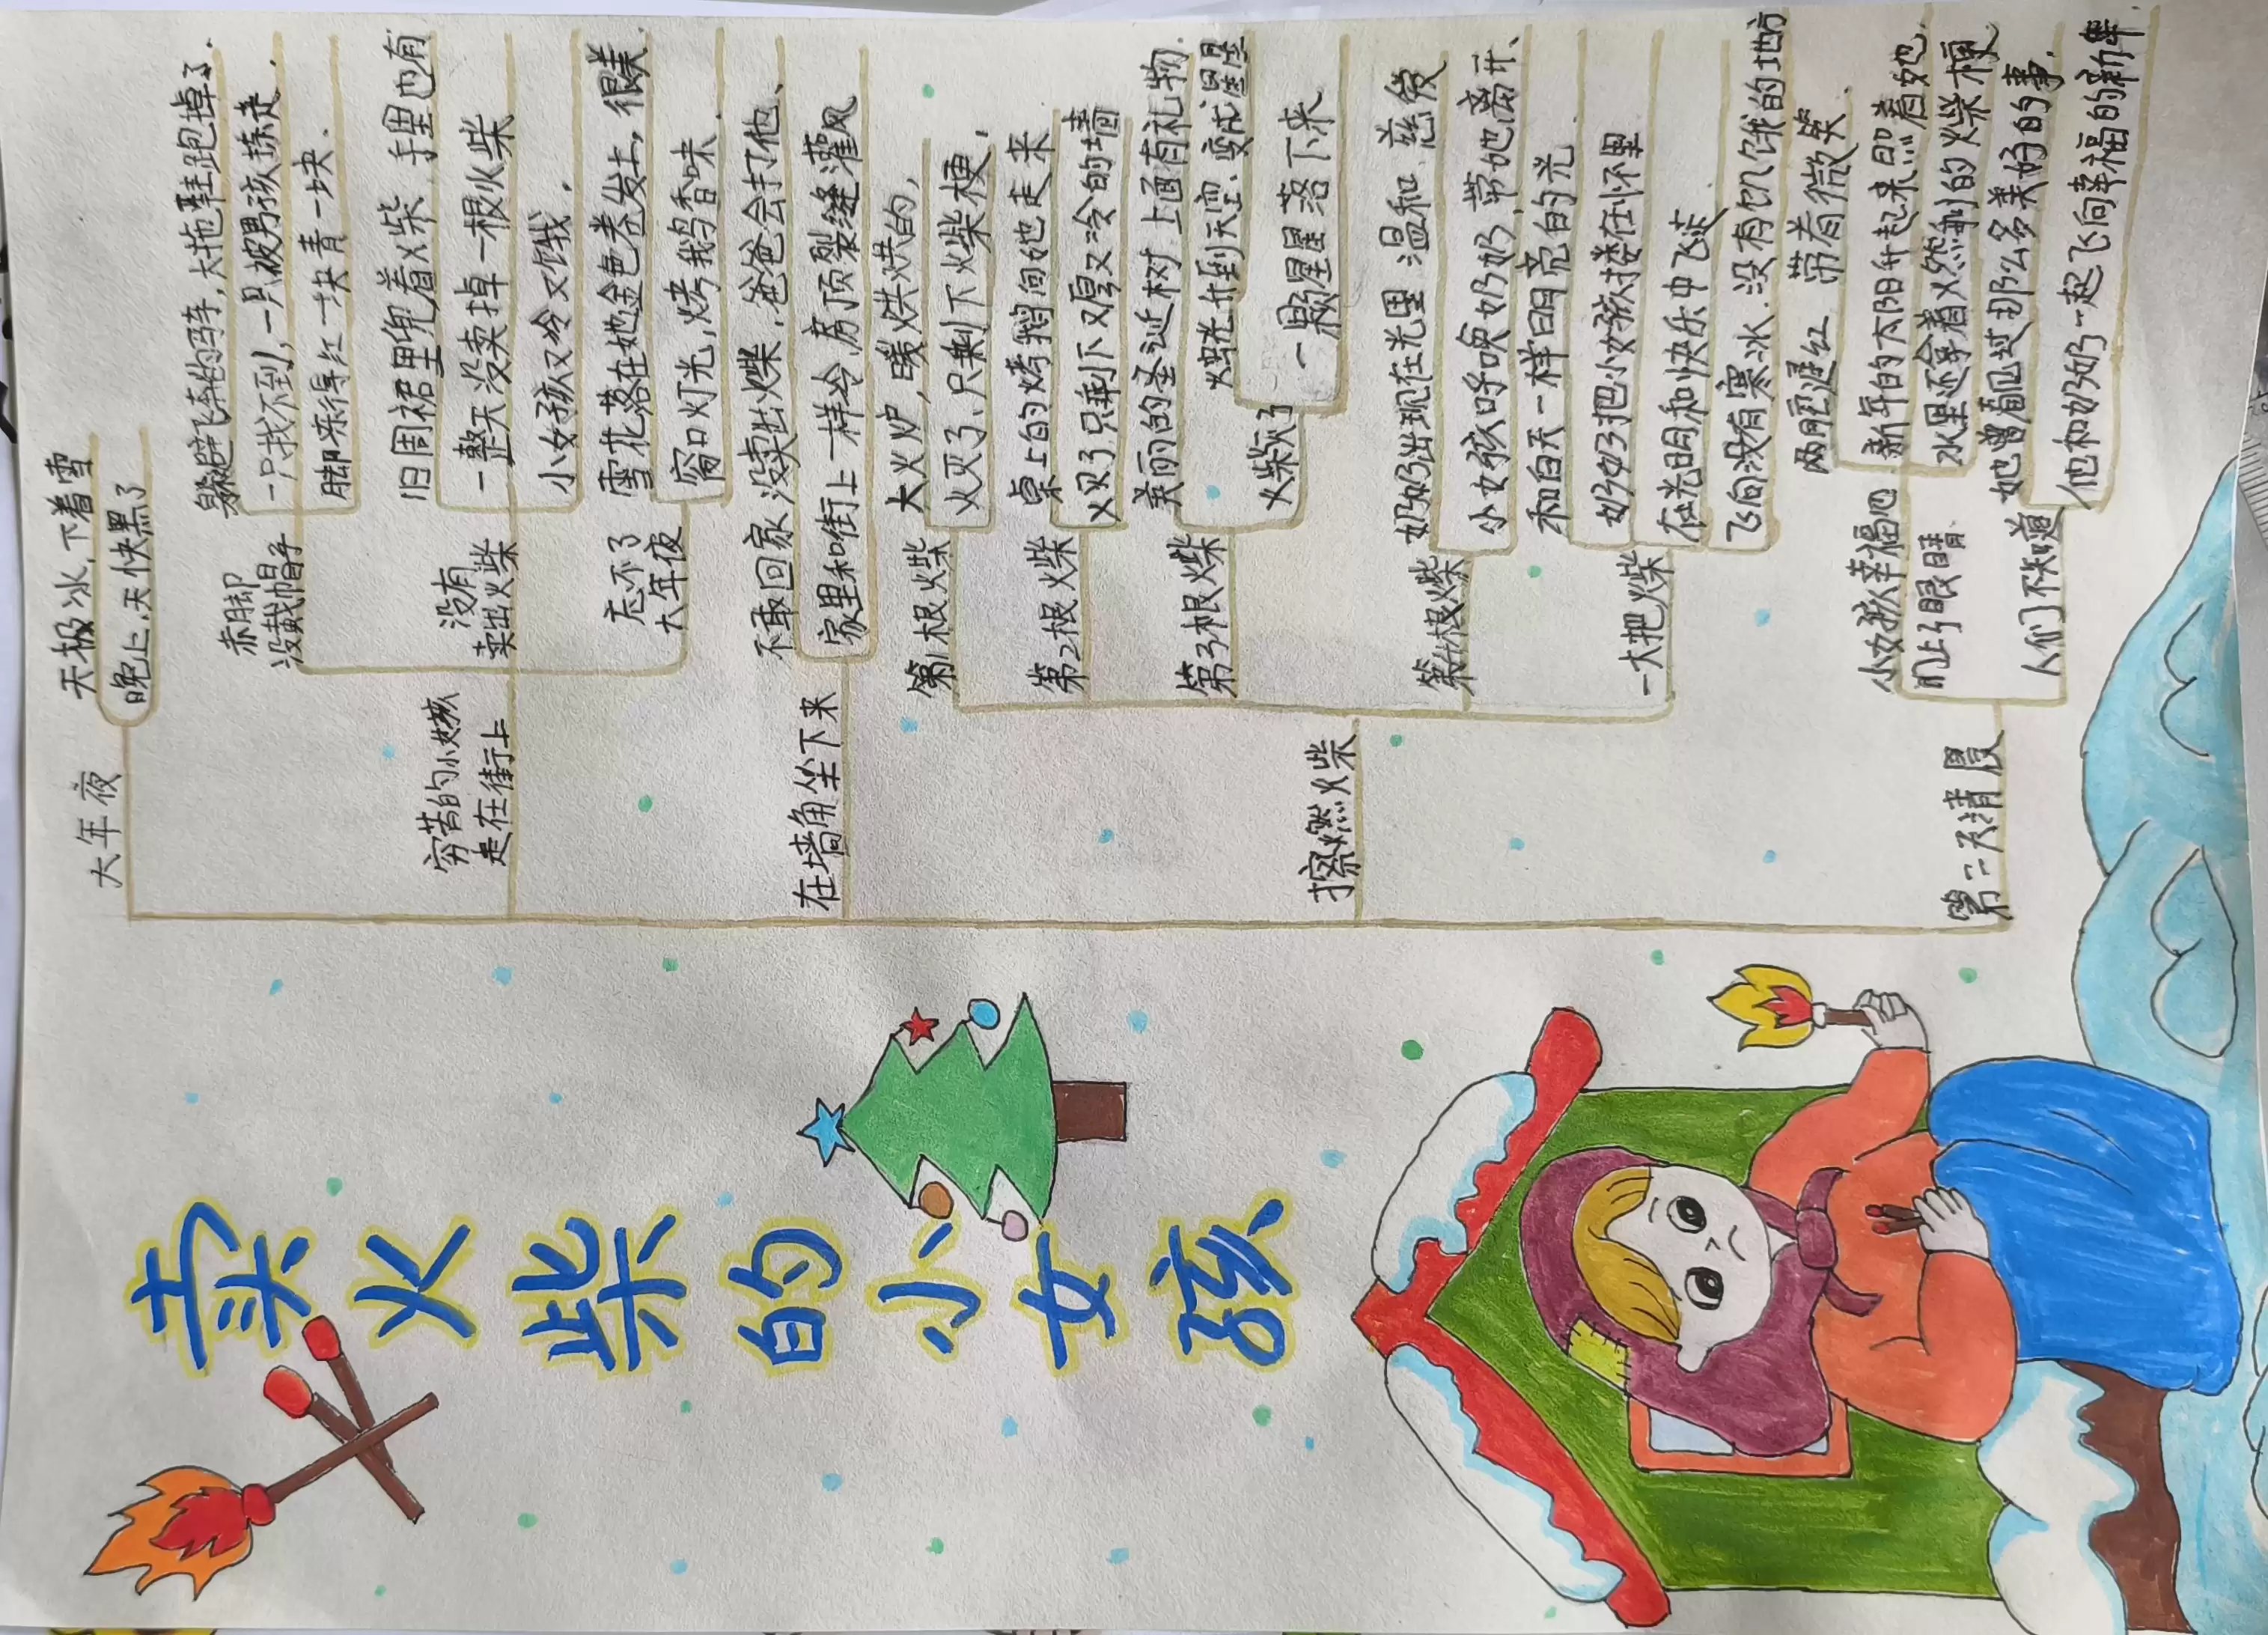 卖火柴的小女孩
大年夜
天极冰，下着雪
晚上，天快黑了
穷苦的小女孩
走在街上
赤脚
没戴帽子
躲避飞奔的马车，大拖鞋跑掉了．
一只找不到，一只被男孩捡走．
脚冻得红一块青一块．
没有
卖出火柴
旧围裙里兜着火柴，手里也有
一整天没卖掉一根火柴
小女孩又冷又饿．
忘不了
大年夜
雪花落在她金色卷发上，很美．
窗口灯光，烤鹅香味．
在墙角坐下来
不敢回家，没卖出火柴，爸爸会打他、
家里和街上一样冷，房顶裂缝灌风
擦燃火柴
第1根火柴
大火炉，暖烘烘的，
火灭了、只剩下火柴梗，
第2根火柴
桌上的烤鹅向她走来
火灭了只剩下又厚又冷的墙
第3根火柴
美丽的圣诞树 上面有礼物．
火柴灭了
烛光升到天空、变成星星
一颗星星落下来
第4根火柴
奶奶出现在光里 温和、慈爱
小女孩呼唤奶奶，带她离开、
一大把火柴
和白天一样明亮的光．
奶奶把小女孩搂在怀里
在光明和快乐中飞走．
飞向没有寒冰．没有饥饿的地方
第二天清晨
小女孩幸福地
闭上了眼睛
两腮通红 带着微笑．
新年的太阳升起来照着她．
人们不知道
她曾看见过那么多美好的事．
他和奶奶一起飞向幸福的新年